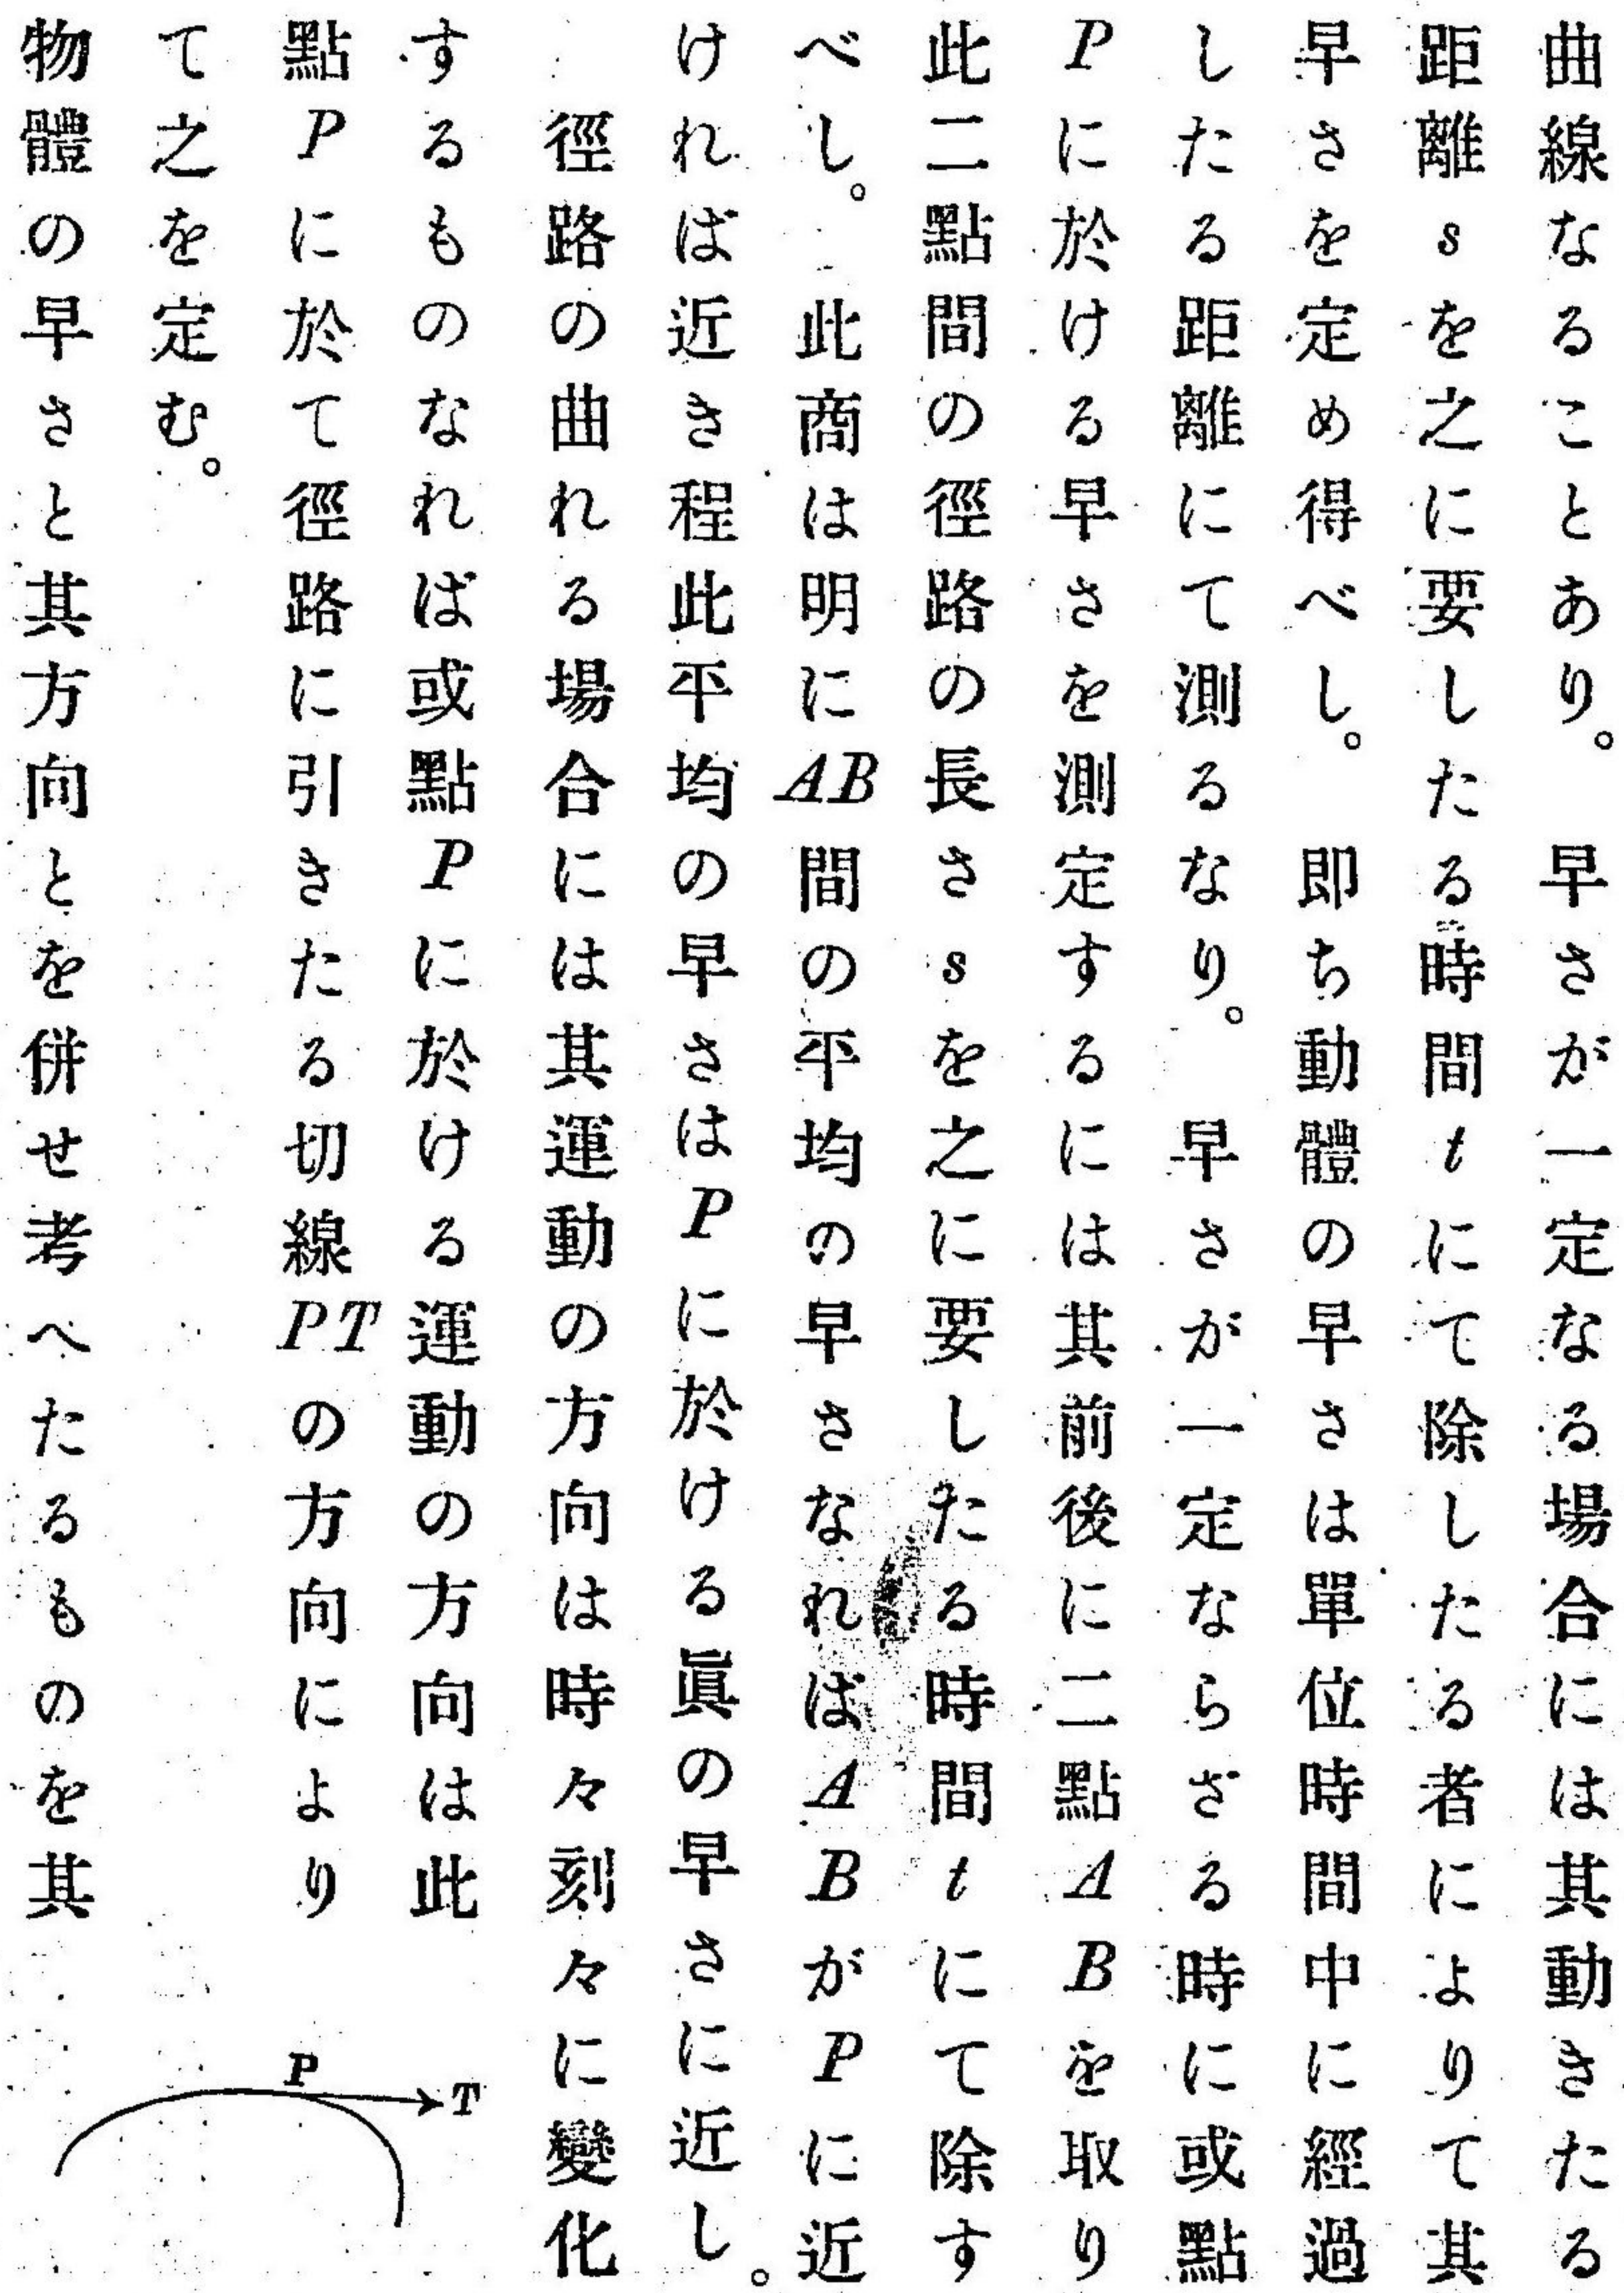 曲線なることあり。 早さが一定なる場合には其動きたる
距離sを之に要したる時間tにて除したる者によりて其
早さを定め得べし。 即ち動體の早さは單位時間中に經過
したる距離にて測るなり。 早さが一定ならざる時に或點
Pに於ける早さを測定するには其前後に二點ABを取り
此二點間の徑路の長さsを之に要したる時間tにて除す
べし。 此商は明にAB間の平均の早さなればABがPに近
ければ近き程此平均の早さはPに於ける眞の早さに近し。
徑路の曲れる場合には其運動の方向は時々刻々に變化
するものなれば或點Pに於ける運動の方向は此
點Pに於て徑路に引きたる切線PTの方向により
て之を定む。
物體の早さと其方向とを併せ考へたるものを其
P
T